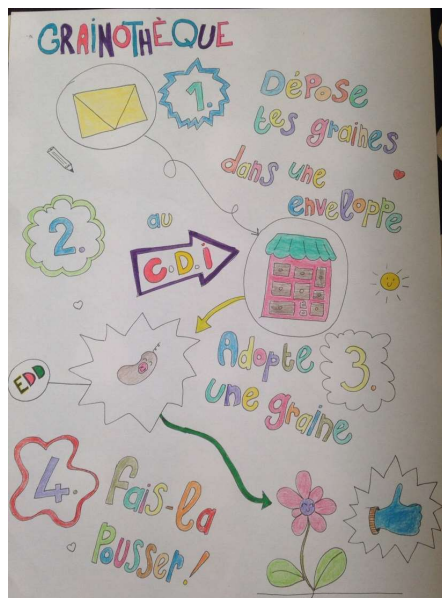 GRAINOTHÈQUE
1.
Dépose
tes graines
dans une
enveloppe
2.
au
C.D.i
Adopte
une graine
3.
EDD
4.
Fais-la
Pousser!